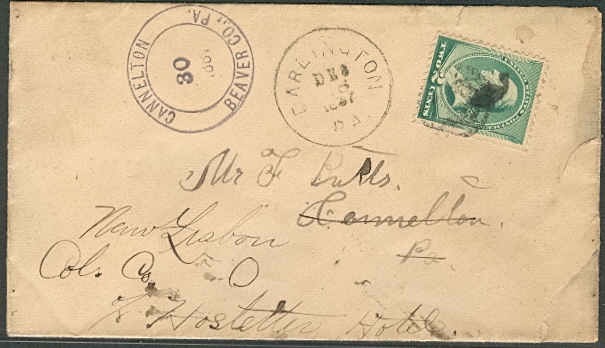 CANNELTON BEAVER CO., PA.
30
188
DARLINGTON
DEC
1887
PA.
TWO CENTS
Mr F Butts.
Cannelton.
Pa
New Lisbon
Col. Co. O
% Hostetter Hotel.